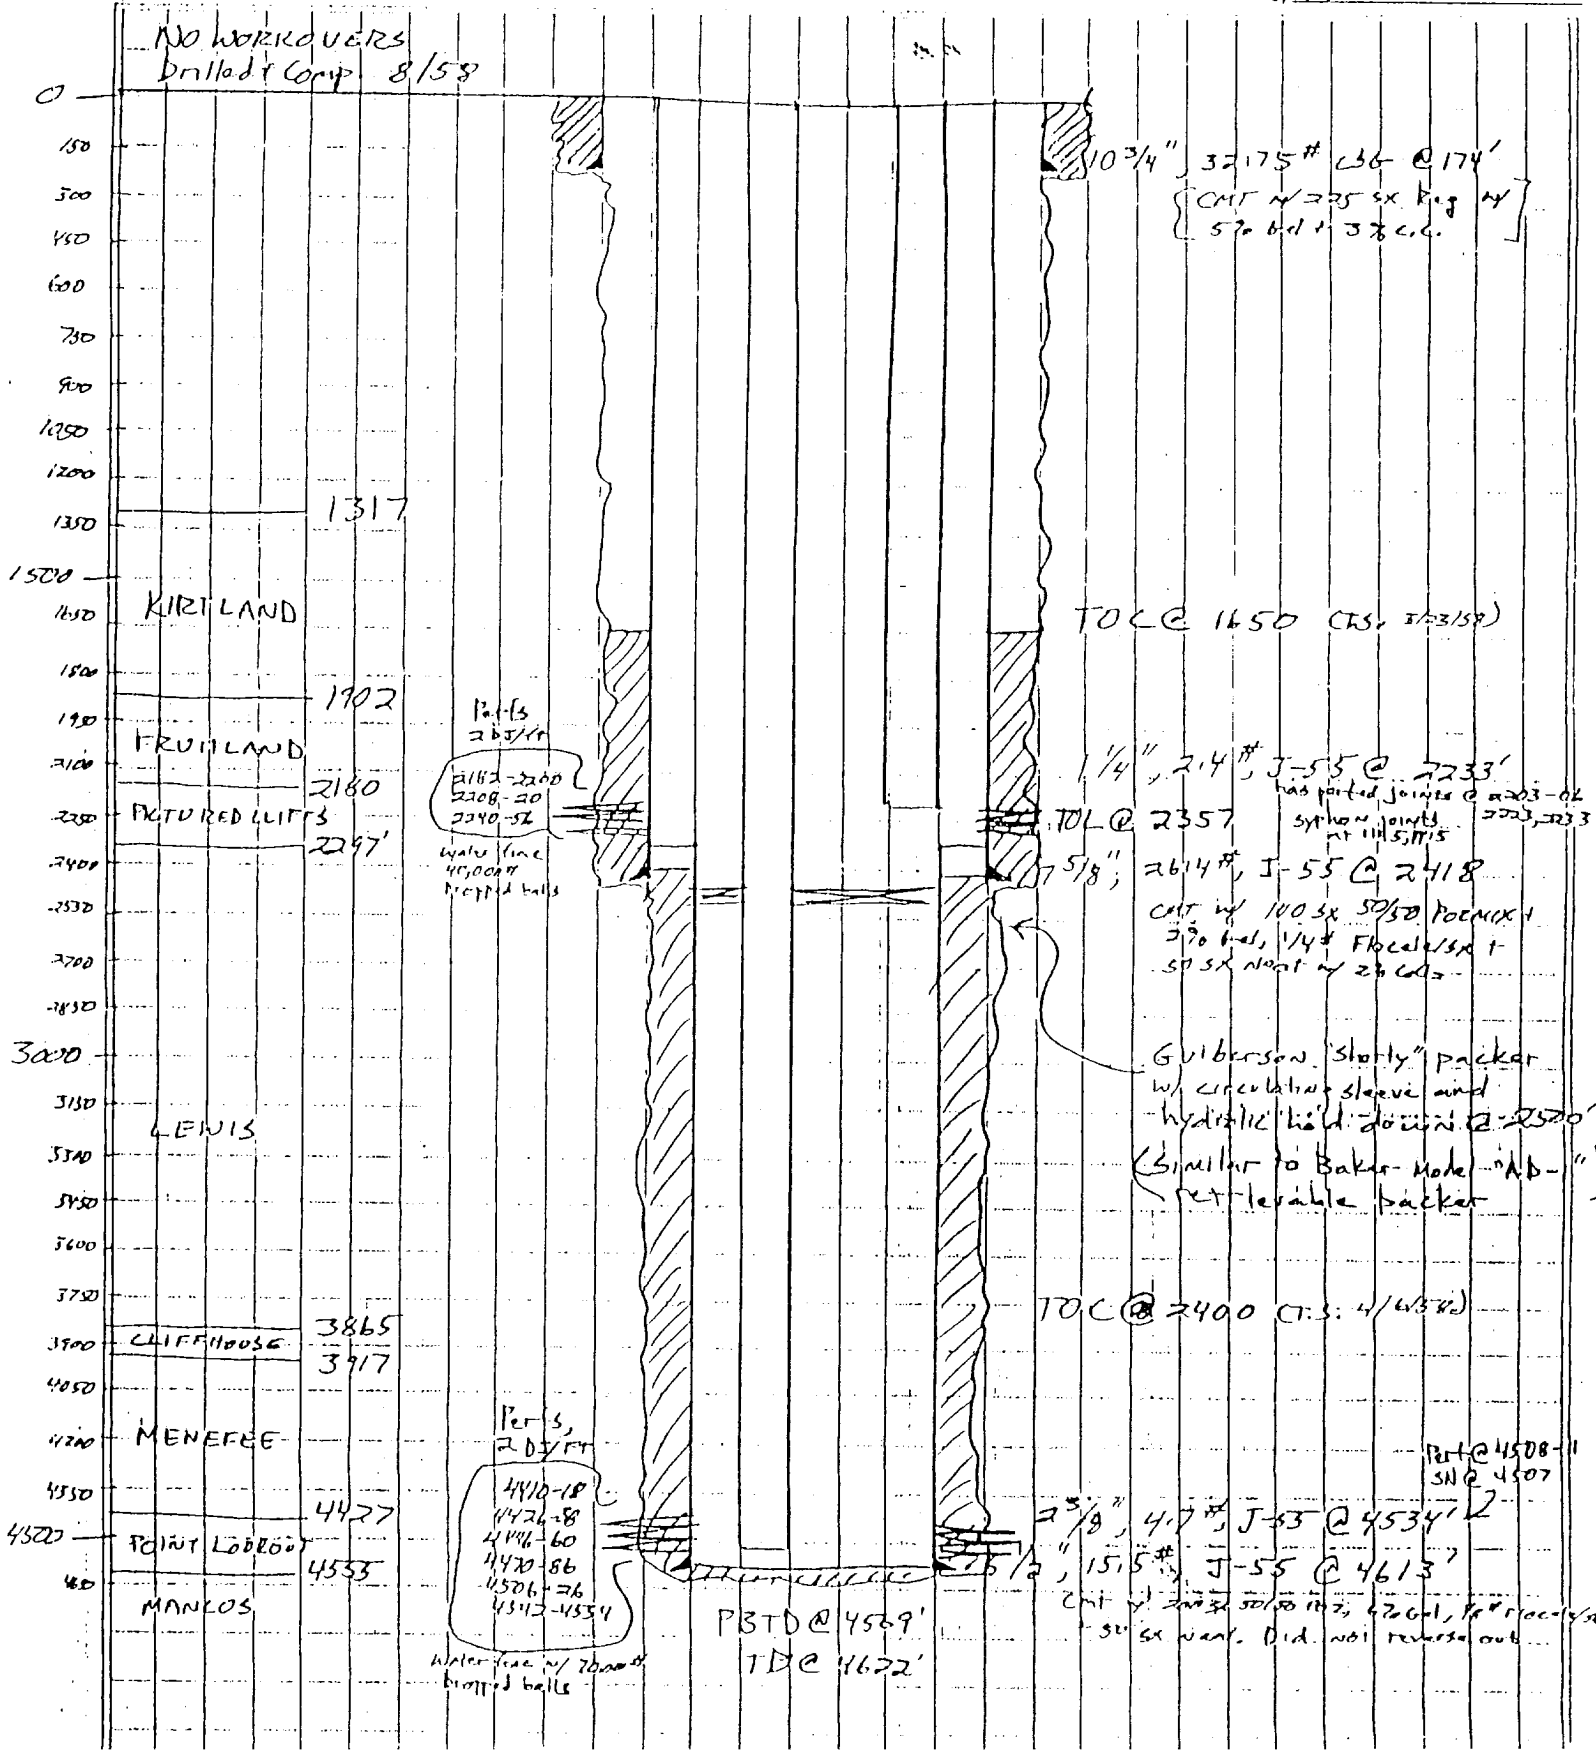 NO WORKOVERS
Drilled & Comp 8/58
0
150
300
450
600
750
900
1050
1200
1350
1500
1650
1800
1950
2100
2250
2400
2550
2700
2850
3000
3150
3300
3450
3600
3750
3900
4050
4200
4350
4500
4650
1317
KIRTLAND
1902
FRUITLAND
2160
PICTURED CLIFFS
2297'
LEWIS
3865
CLIFFHOUSE
3917
MENEFEE
4427
POINT LOOKOUT
4555
MANCOS
Perfs
2 DJ/FT
2182-2200
2208-20
2240-56
Water frac
Dropped balls
Perfs,
2 DJ/FT
4410-18
4426-8
4446-60
4470-86
4506-26
4542-4554
Water frac w/
Dropped balls
10 3/4", 32.75# CSG @ 174'
CMT w/ 225 sx Reg w/
5% gel + 3% c.c.
TOC @ 1650 (T.S.
1 1/4", 2.4#, J-55 @ 2233'
has ported joints @ 2203-06
syphon joints
TOL @ 2357
7 5/8", 26.4#, J-55 @ 2418
CMT w/ 100 sx 50/50 POZMIX +
2% gel, 1/4# Flocele/sx +
50 sx neat w/
Guiberson "Shorty" packer
w/ circulating sleeve and
hydralic hold down @ 2520'
(Similar to Baker Model "AD-1"
retrievable packer
TOC @ 2400 (T.S.
Perf @ 4508-11
SN @ 4507
2 3/8", 4.7#, J-55 @ 4534'
5 1/2", 15.5#, J-55 @ 4613'
Cmt w/
50 sx neat. Did not reverse out
PBTD @ 4569'
TD @ 4622'